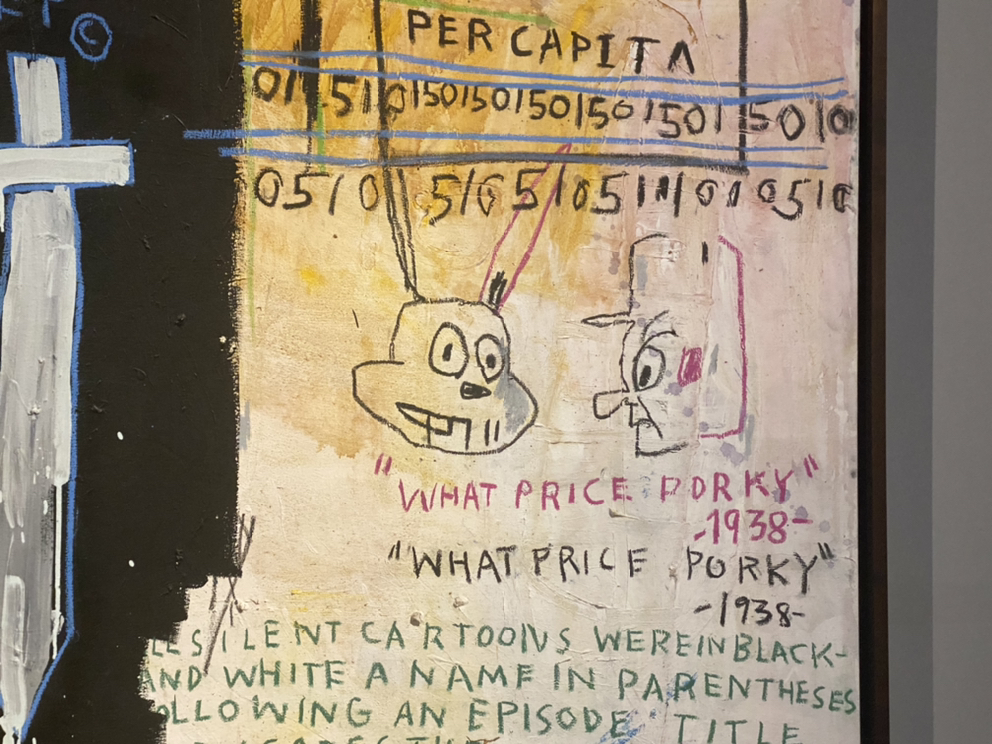 ©
PER CAPITA
01 51 0150150150150150115010
0510 5/05/051110100510
"WHAT PRICE PORKY"
-1938-
"WHAT PRICE PORKY"
-1938-
LE SILENT CARTOONS WERE IN BLACK-
AND WHITE A NAME IN PARENTHESES
OLLOWING AN EPISODE TITLE